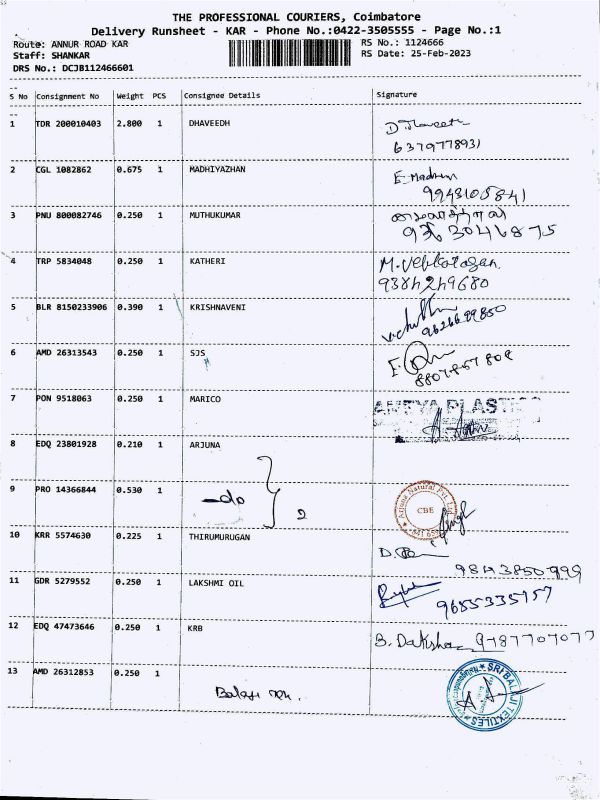 THE PROFESSIONAL COURIERS, Coimbatore
Delivery Runsheet - KAR - Phone No.:0422-3505555 - Page No.:1
Route: ANNUR ROAD KAR RS No.: 1124666
Staff: SHANKAR RS Date: 25-Feb-2023
DRS No.: DCJB112466601
S No Consignment No Weight PCS Consignee Details Signature
1 TDR 200010403 2.800 1 DHAVEEDH D Dhaveeth
6379778931
2 CGL 1082862 0.675 1 MADHIYAZHAN
9943105841
3 PNU 800082746 0.250 1 MUTHUKUMAR
9363046875
4 TRP 5834048 0.250 1 KATHERI
9384249680
5 BLR 8150233906 0.390 1 KRISHNAVENI
9626699850
6 AMD 26313543 0.250 1 SJS
8807867808
7 PON 9518063 0.250 1 MARICO
8 EDQ 23801928 0.210 1 ARJUNA
9 PRO 14366844 0.530 1 -do } 2 Arjuna Natural Pvt Ltd CBE
10 KRR 5574630 0.225 1 THIRUMURUGAN
9843850999
11 GDR 5279552 0.250 1 LAKSHMI OIL
9655335757
12 EDQ 47473646 0.250 1 KRB B. Daksha 9787707077
13 AMD 26312853 0.250 1 SRI BALAJI TEXTILES
Balaji